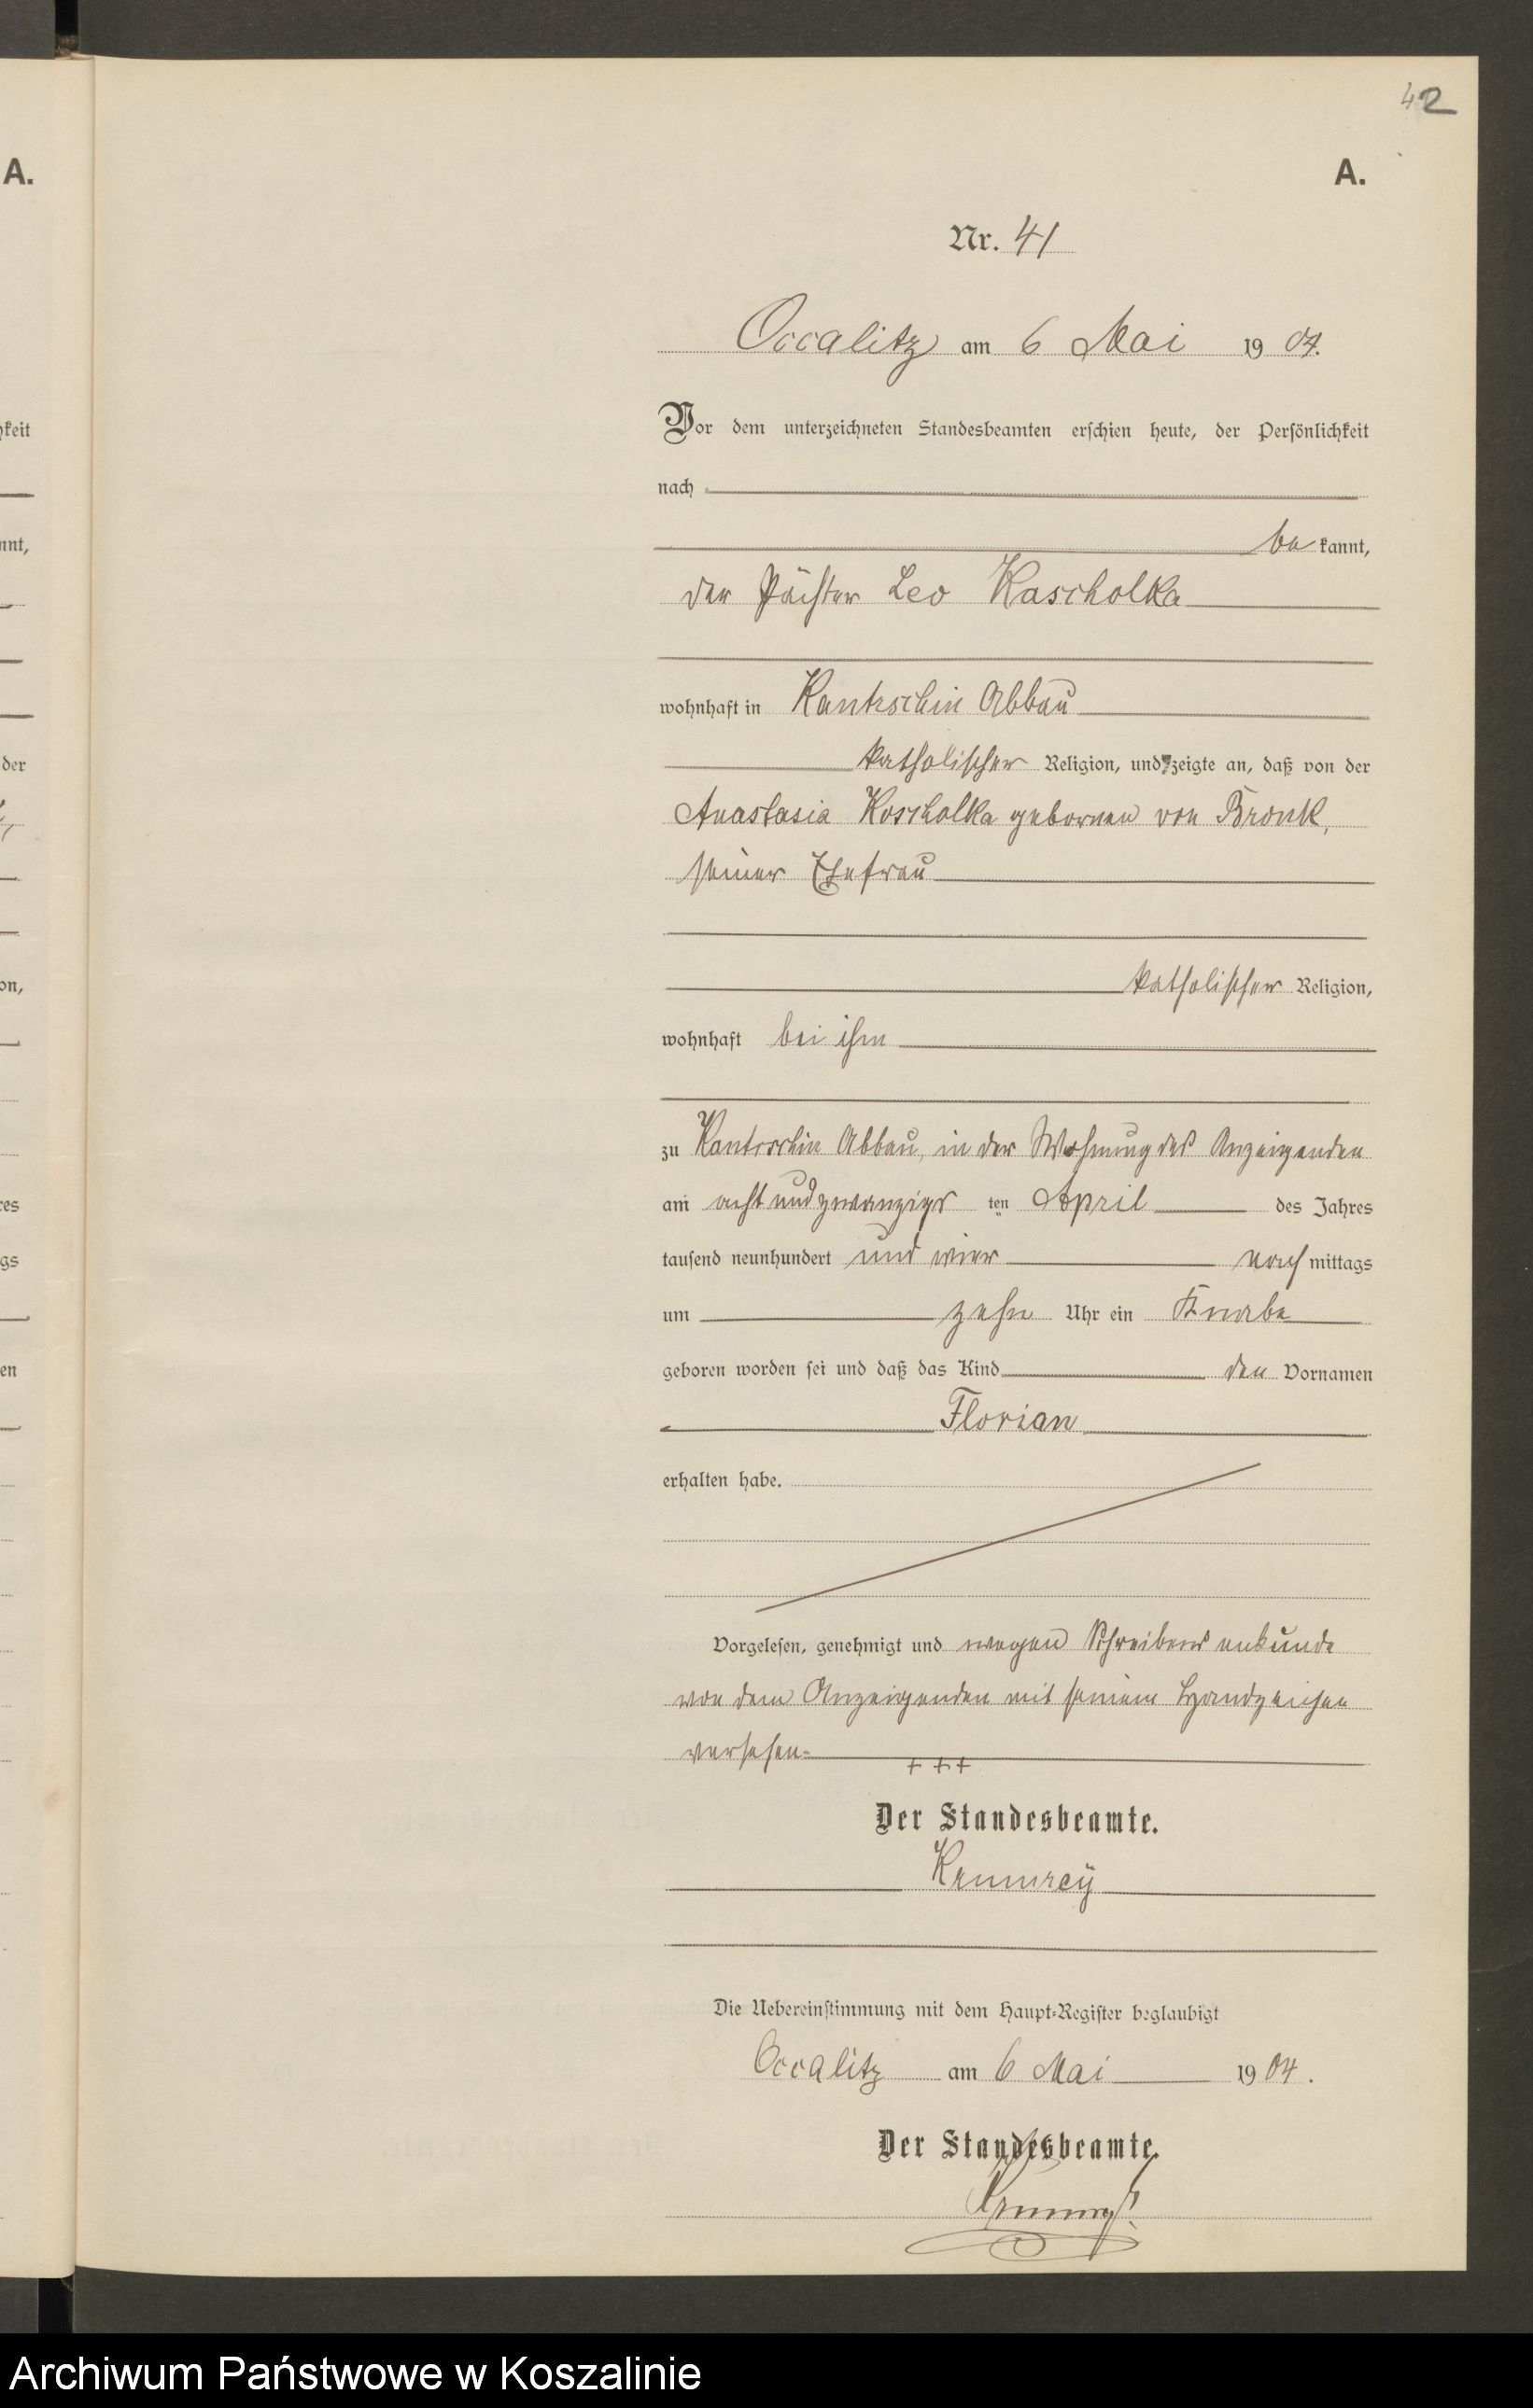 42
A.
A.
Nr. 41
Occalitz am 6 Mai 1904.
Vor dem unterzeichneten Standesbeamten erschien heute, der Persönlichkeit
nach
be kannt,
der Pächter Leo Kascholka
wohnhaft in Kantrschin Abbau
katholischer Religion, und zeigte an, daß von der
Anastasia Koscholka geborenen von Bronk,
seiner Ehefrau
katholischer Religion,
wohnhaft bei ihm
zu Kantrschin Abbau, in der Wohnung des Anzeigenden
am acht und zwanzigs ten April des Jahres
tausend neunhundert und vier nach mittags
um zehn Uhr ein Knabe
geboren worden sei und daß das Kind den Vornamen
Florian
erhalten habe.
Vorgelesen, genehmigt und wegen Schreibens unkunde
von dem Anzeigenden mit seinem Handzeichen
versehen.
+ + +
Der Standesbeamte.
Krumrey
Die Uebereinstimmung mit dem Haupt-Register beglaubigt
Occalitz am 6 Mai 1904.
Der Standesbeamte.
Krumrey
hkeit
nnt,
der
on,
res
gs
en
Archiwum Państwowe w Koszalinie